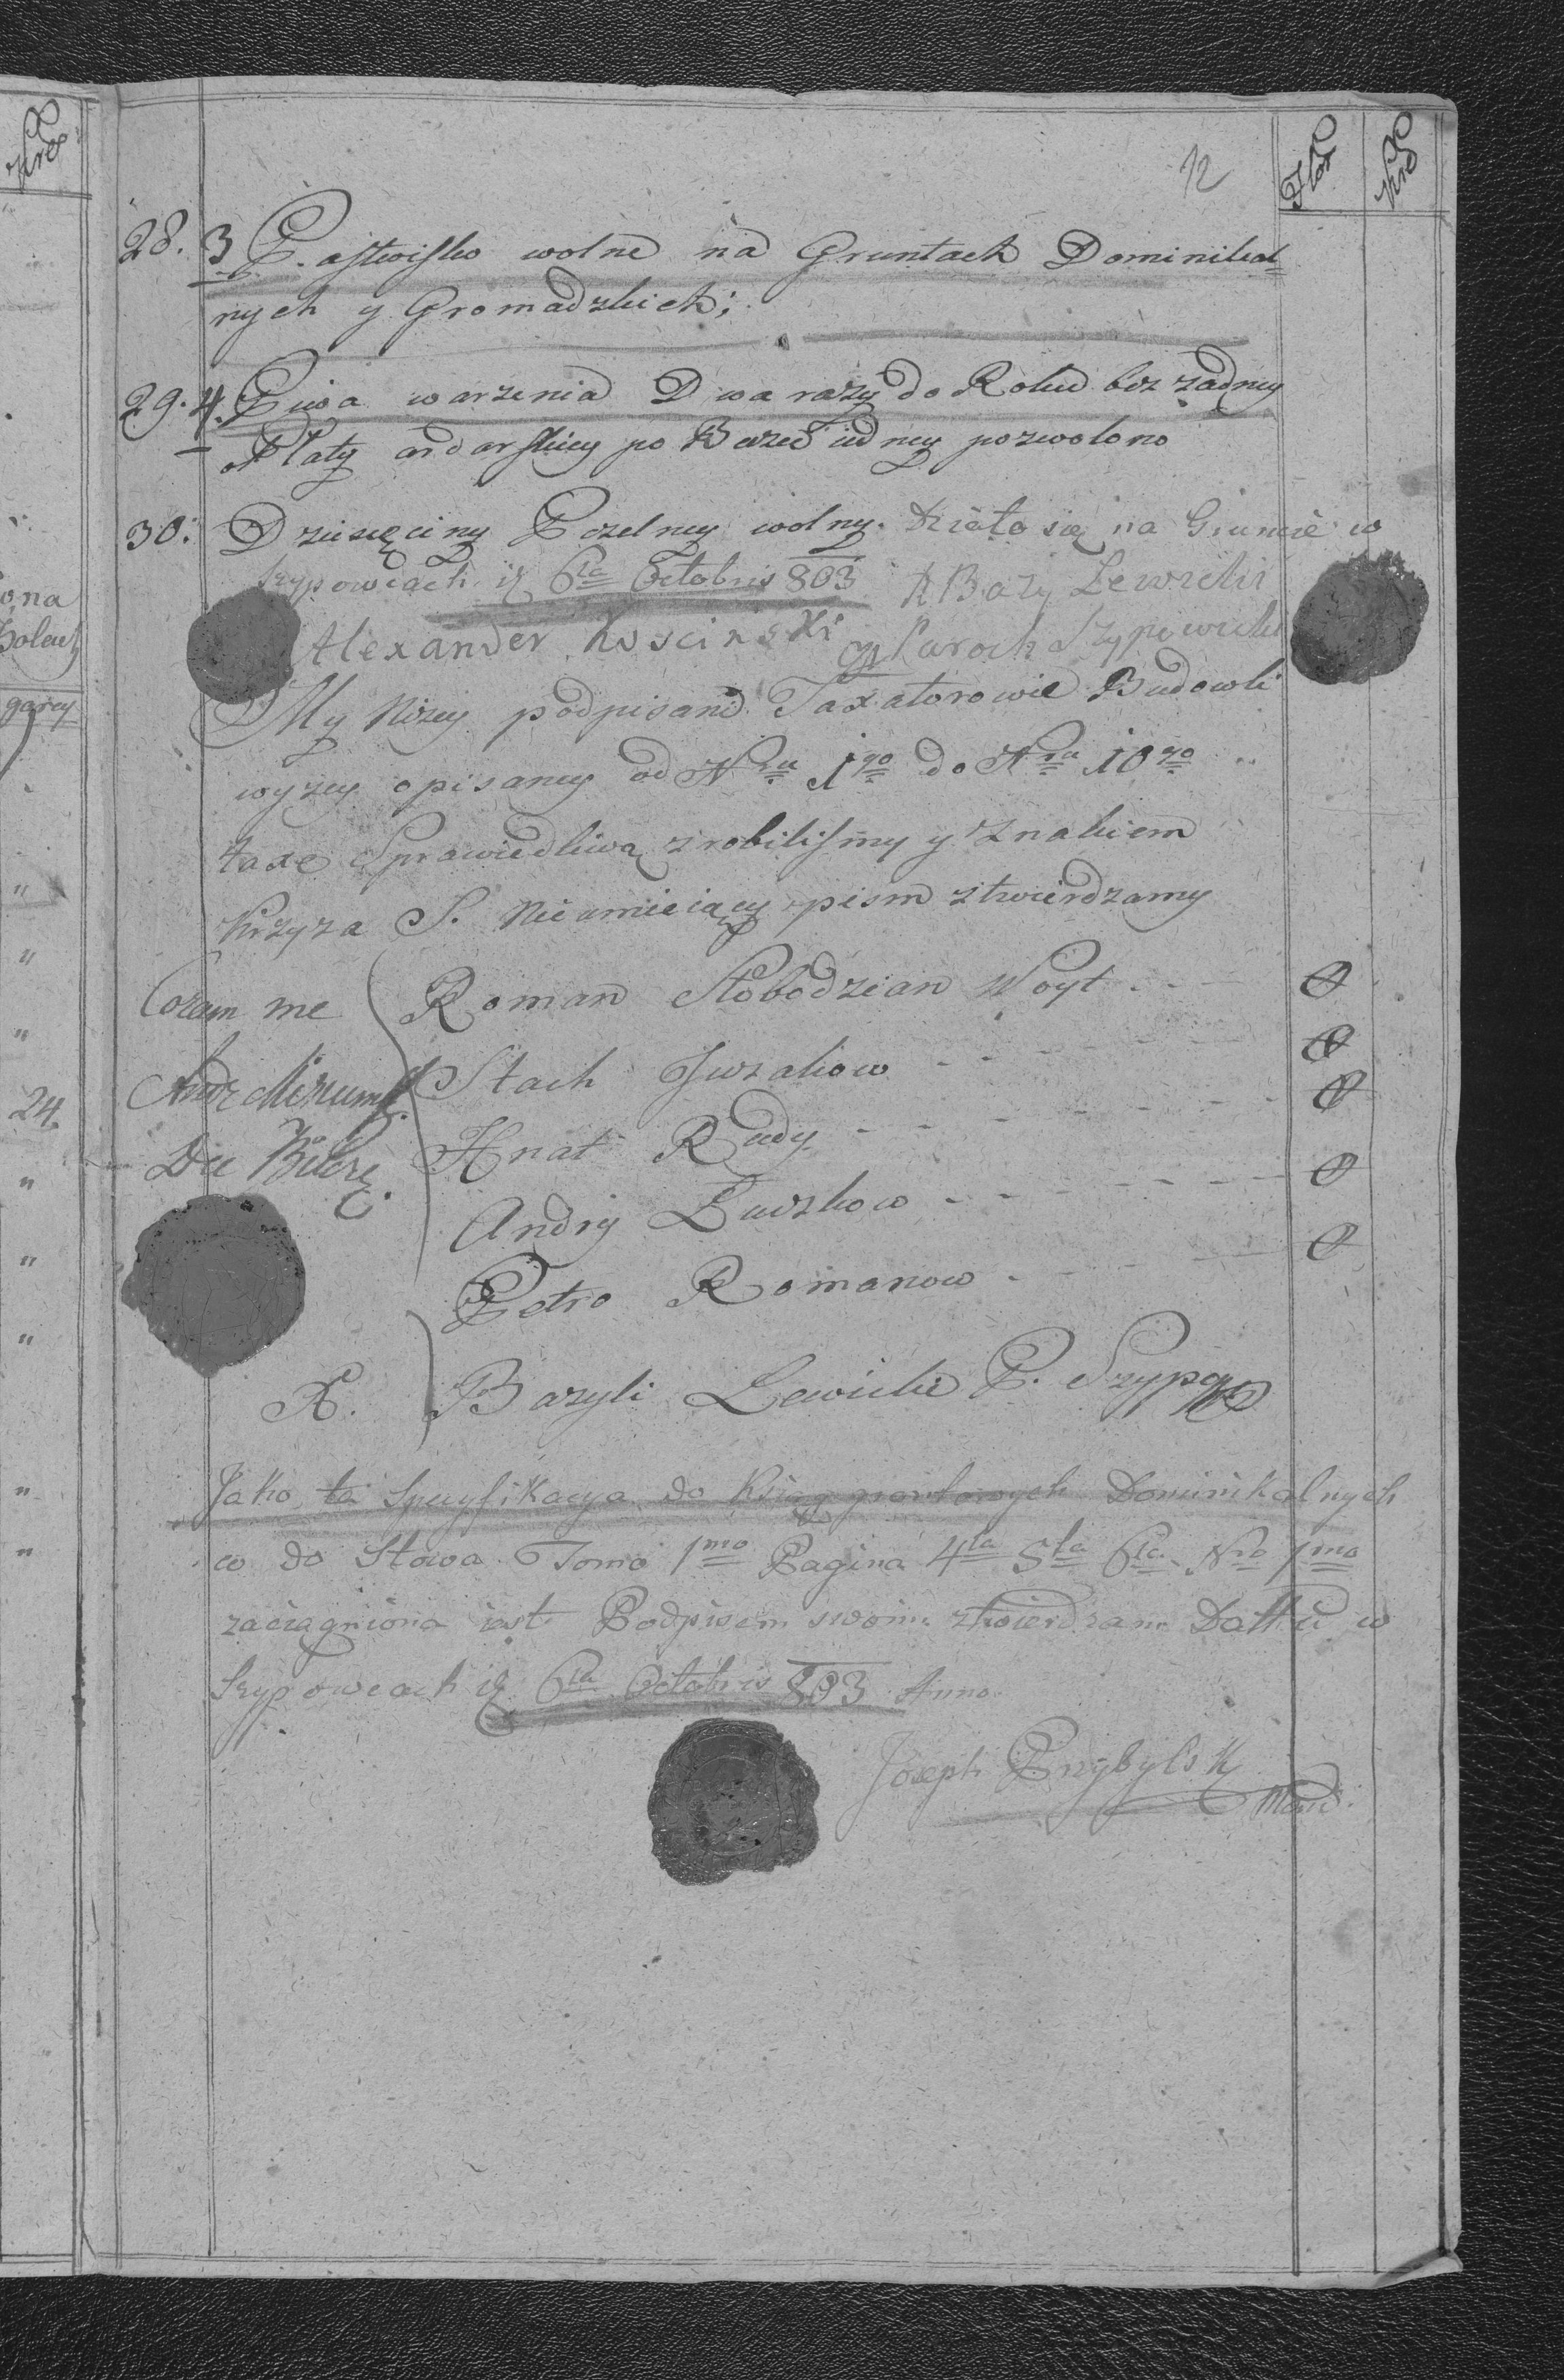 12
Flor
Kro
28. 3 Pastwisko wolne na Gruntach Dominikal=
nych y Gromadzkich;
29. 4. Piwa warzenia Dwa razy do Roku bez zadney
Płaty ardarskiey po Beczce iedney pozwolono
30. Dziesięciny Pczelney wolny. Działo się na Gruncie w
Szypowcach 6ta Octobris 803 X Bazy Lewicki
Alexander Koscinski Paroch Szypowiecki
My Nizey podpisani Taxatorowie Budowli
wyzey opisaney od Nru 1go do Nru 10go
taxę Sprawiedliwą zrobiliśmy y Znakiem
Krzyza S. Nieumieiący pism ztwierdzamy
Coram me Roman Słobodzian Woyt
Stach Iwzakow
Hnat Rudy
Andrij Łuczkow
Petro Romanow
X. Bazyli Lewicki P. Szypo
Jako ta Specyfikacya do Ksiąg gruntowych Dominikalnych
co do Słowa Tomo 1mo Pagina 4ta 5ta 6ta Nro 1mo
zaciągniona iest Podpisem swoim ztwierdzam Datt w
Szypowcach 6ta Octobris 803 Anno
Joseph Przybylsk
Kro
ona
garcy
24.